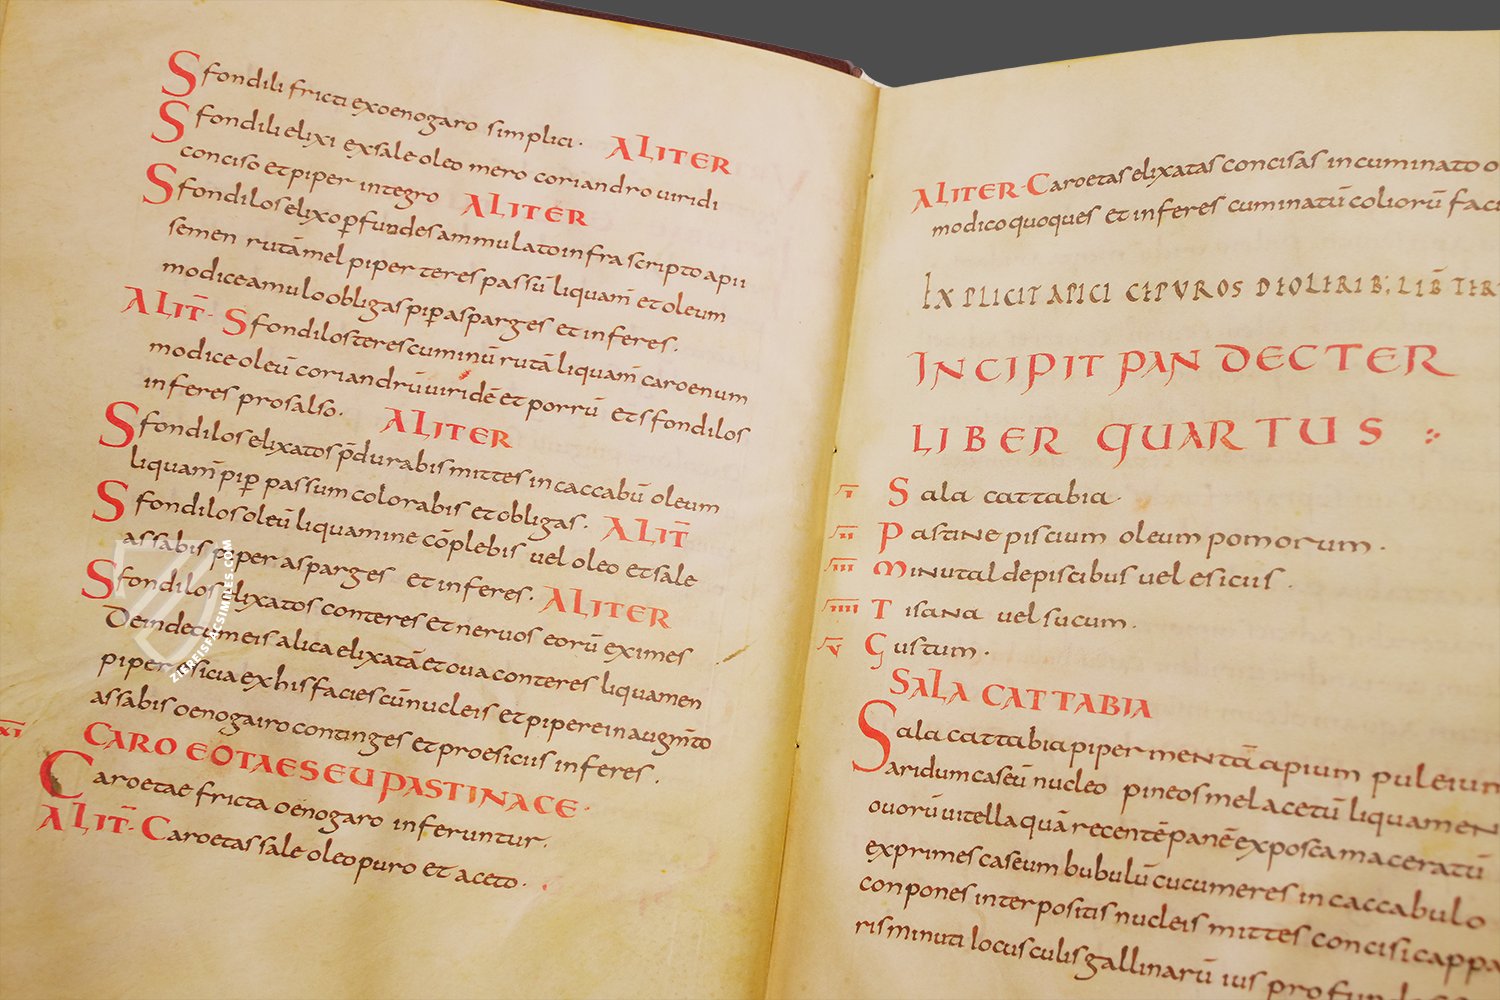 Sfondili fricti exoenogaro simplici· ALITER
Sfondili elixi exsale oleo mero coriandro uiridi
conciso et piper integro ALITER
Sfondilos elixo p̱fundes ammulato infra scripto apii
semen rutāmel piper teres passū liquam̄ et oleum
modice amulo obligas pip̱ asparges et inferes.
ALIT̄· Sfondilos teres cuminū rutā liquam̄ caroenum
modice oleū coriandrū uiridē et porrū et sfondilos
inferes prosalso. ALITER
Sfondilos elixatos p̄durabis mittes incaccabū oleum
liquam̄ pip̱ passum colorabis et obligas. ALIT̄
Sfondilos oleū liquamine cōplebis uel oleo et sale
assabis piper asparges et inferes. ALITER
Sfondilos elixatos conteres et neruos eorū eximes
Deinde cumeis alica elixatā et oua conteres liquamen
piper esicia ex his facies cū nucleis et pipere in augm̄to
assabis oenogairo continges et proesicius inferes.
XI CARO EOTAES EU PASTINACE·
Caroetae fricta oenogaro inferuntur.
ALIT̄· Caroetas sale oleo puro et aceto.
ZIEREISFACSIMILES.COM
ALITER· Caroetas elixatas concisas incuminato o
modico quoques et inferes cuminatū coliorū faci
EXPLICIT APICI CEPUROS DEOLERIB; LIB̄ TER
INCIPIT PAN DECTER
LIBER QUARTUS
I Sala cattabia·
II Pastine piscium oleum pomorum.
III Minutal depiscibus uel esicius.
IIII Tisana uel sucum.
V Gustum.
SALA CATTABIA
Sala cattabia piper mentā apium puleium
aridum caseū nucleo pineos mel acetū liquamen
ouorū uitella quā recentē panē exposca maceratū
exprimes caseum bubulū cucumeres in caccabulo
conpones interpositis nucleis mittes concisi cappa
ris minuti locusculis gallinarū ius profun